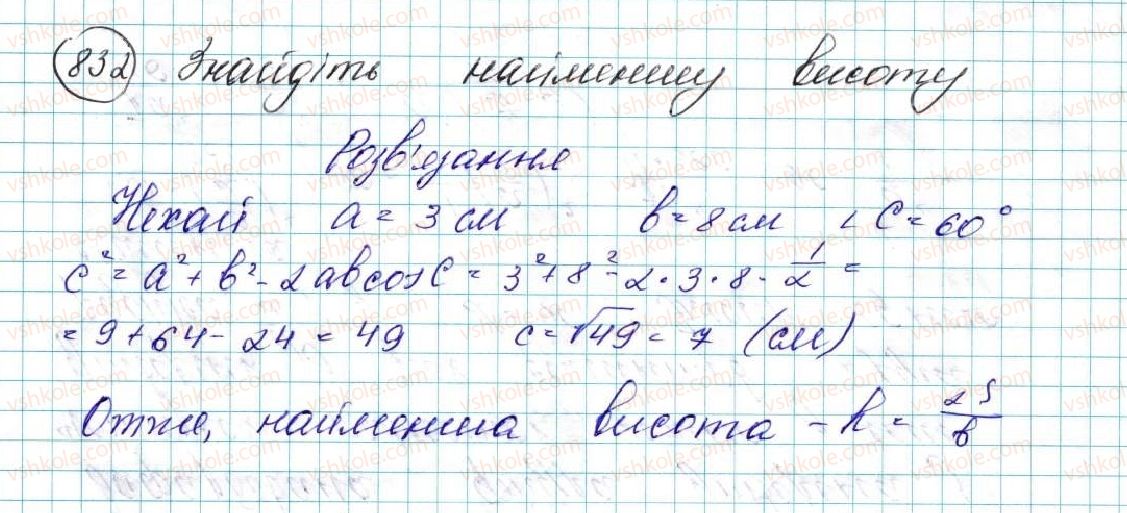 832 Знайдіть найменшу висоту
Розв'язання
Нехай a = 3 см b = 8 см ∠C = 60°
c² = a² + b² - 2ab cos C = 3² + 8² - 2·3·8·1/2 =
= 9 + 64 - 24 = 49 c = √49 = 7 (см)
Отже, найменша висота - h = 2S/b